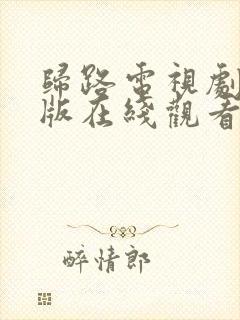 歸路電視劇
版在綫觀看
醉情郎